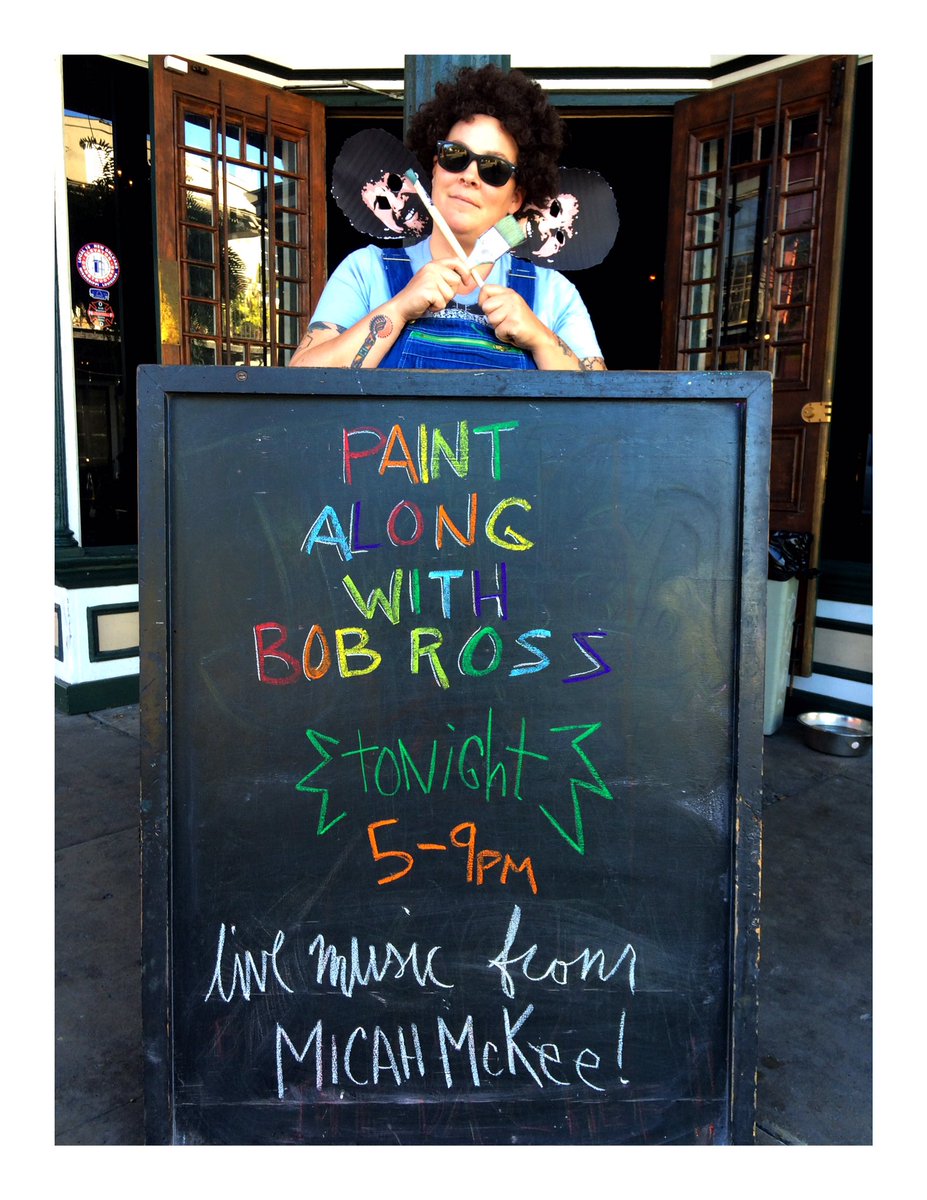 PAINT
ALONG
WITH
BOB ROSS
tonight
5-9PM
live music from
MICAH McKee!